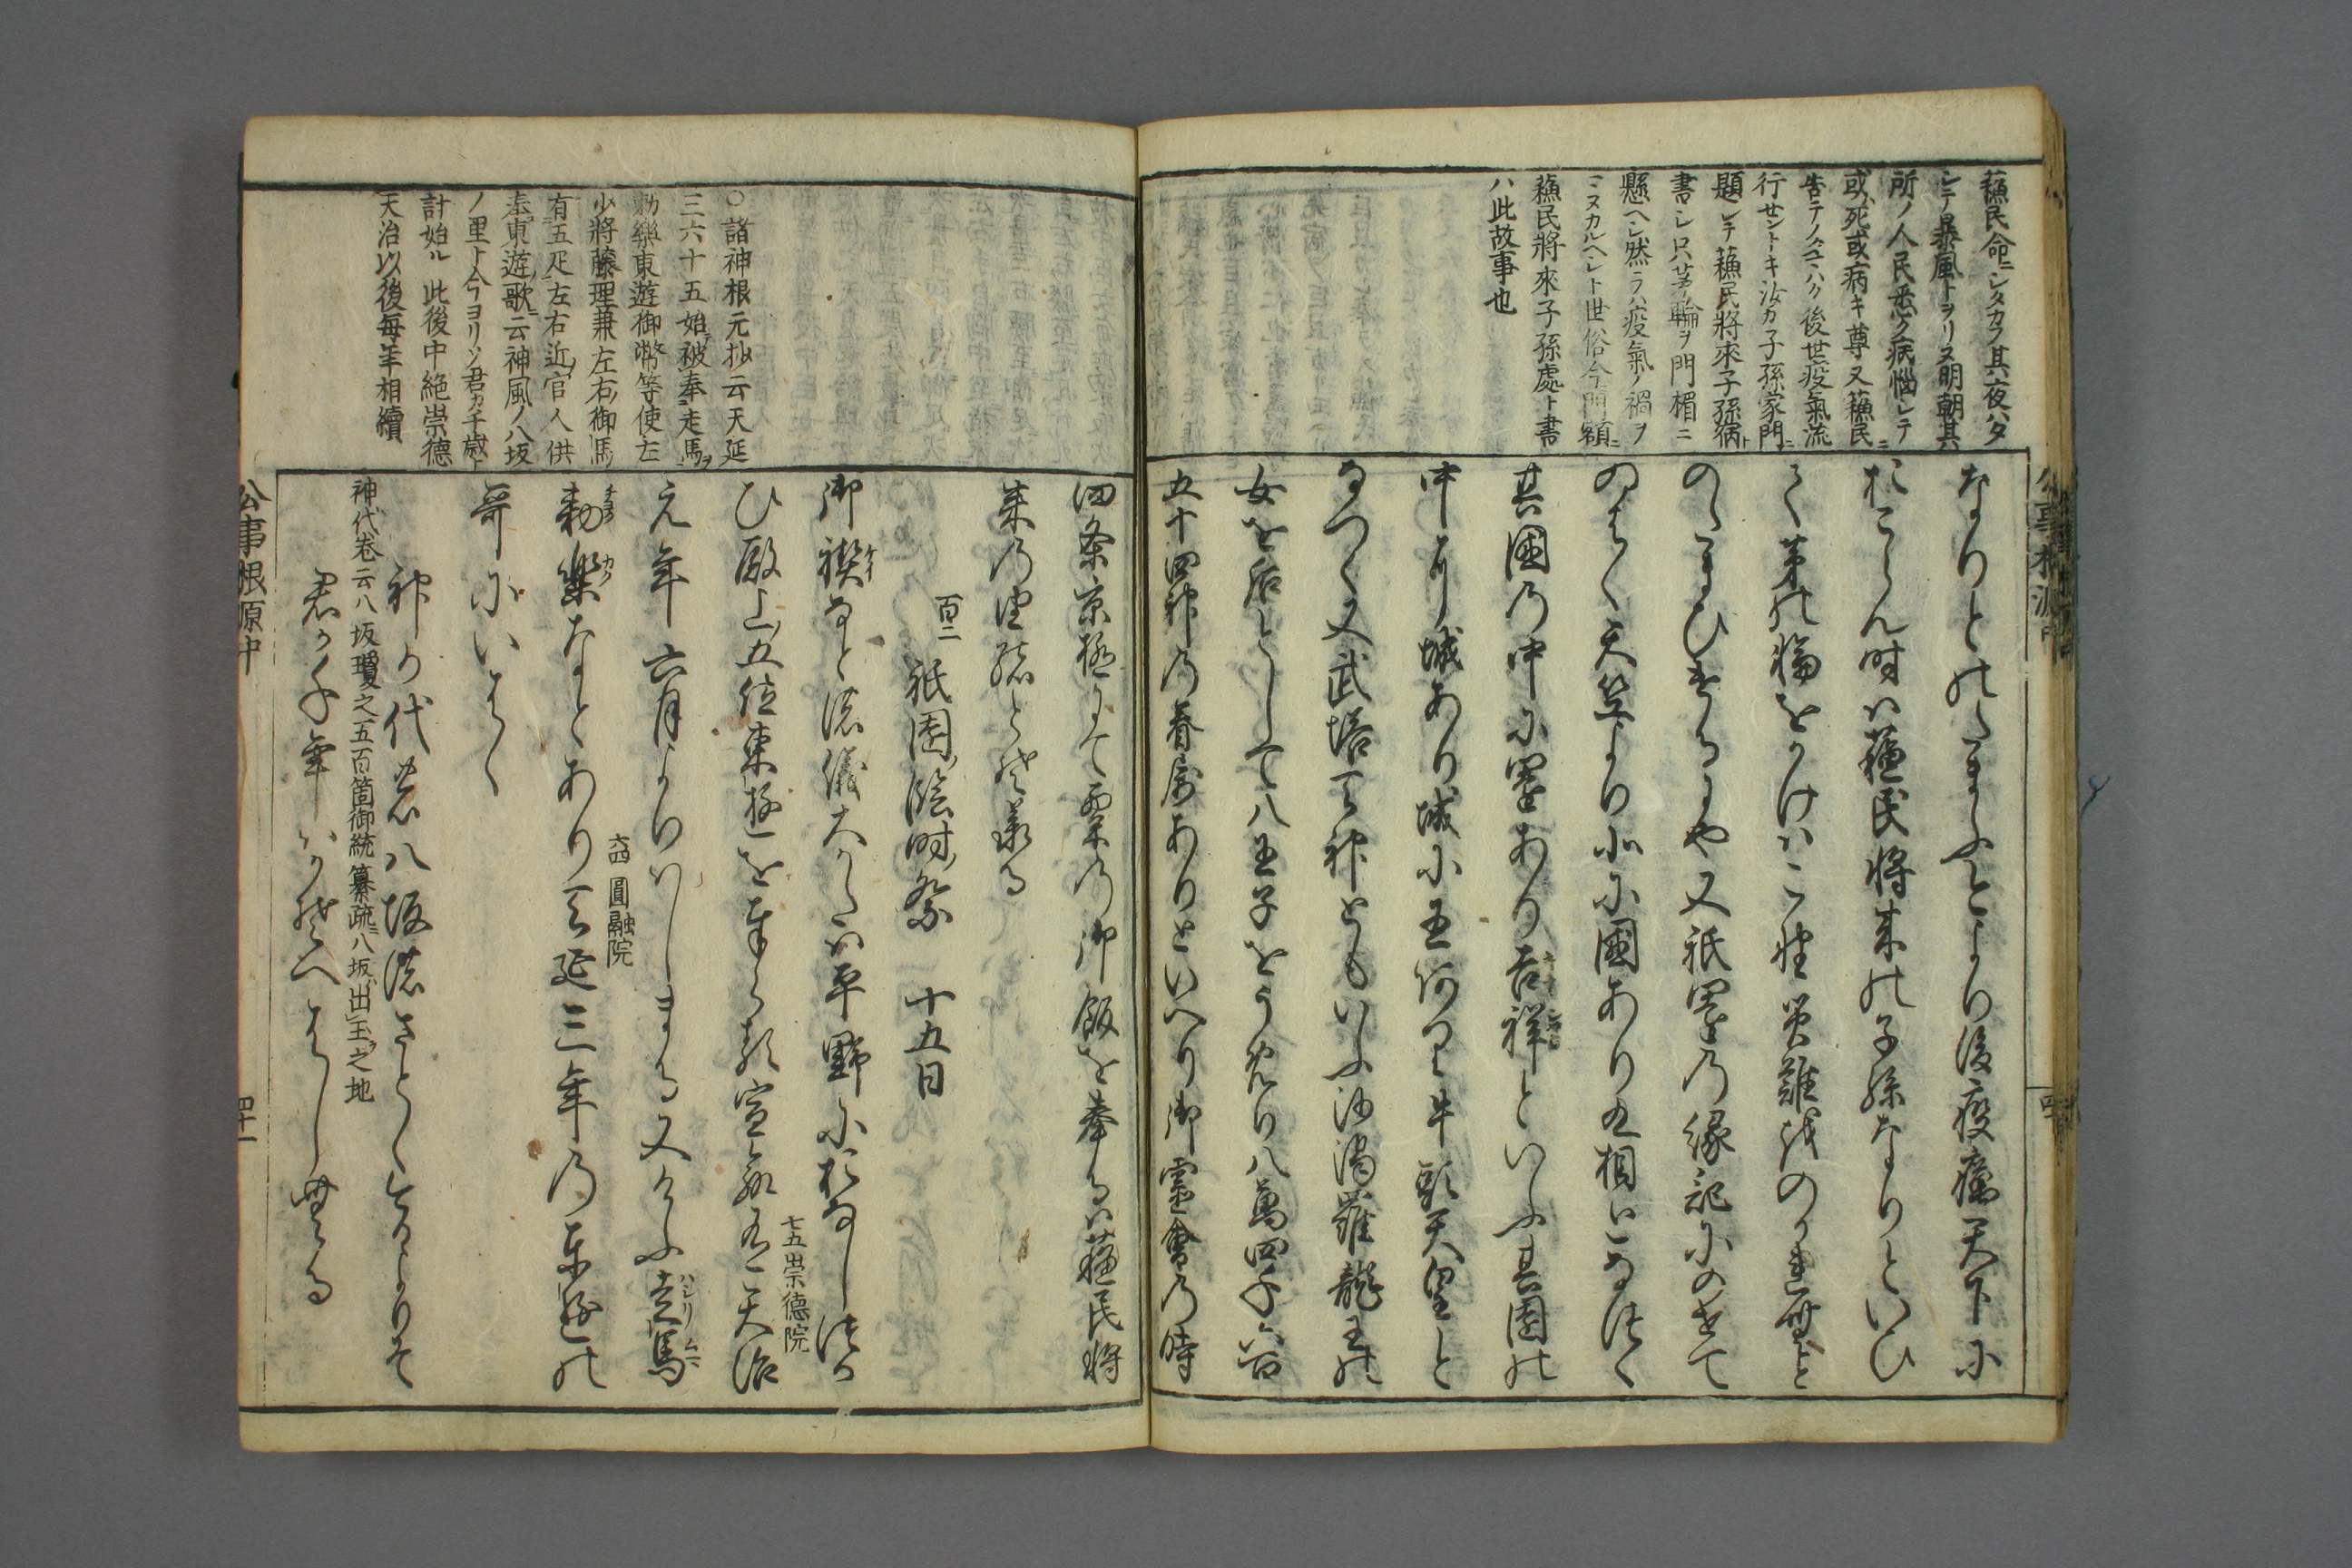 蘓民命ニシタカフ其夜ハタ
シテ暴風トヲリヌ明朝其
所ノ人民悉ク病惱シテ
或ハ死或病キ尊又蘓民ニ
告テノ玉ハク後世疫氣流
行セントキ汝カ子孫家門ニ
題シテ蘓民將來子孫病ト
書シ只茅ノ輪ヲ門楣ニ
懸ヘシ然ラハ疫氣ノ禍ヲ
ミヌカルヘシト世俗今門額ニ
蘓民將來子孫處ト書
ハ此故事也
なりとのたまふとより後疫癘天下に
おこらん時は蘓民将来の子孫なりといひ
て茅の輪をかけはこの災難をのかれむと
のたまひけるにや又祇園の縁記にのせて
いはく天竺より北に国あり九相となつく
其国の中に園あり吉祥といふ其園の
中に城あり城に王あり牛頭天皇と
なつく又武塔天神ともいふ沙渇羅龍王の
女を后として八王子をうめり八萬四千六百
五十四神の眷属ありといへり御霊會の時
公事根源中
四十
○諸神根元抄云天延
三六十五始被奉走馬ヲ
勅樂東遊御幣等使左
少將藤理兼左右御馬
有五疋左右近官人供
奉東遊歌云神風ノ八坂
ノ里ト今ヨリソ君カ千歳ト
計始ル 此後中絶崇德
天治以後毎年相續
四条京極にて粟の御飯を奉るは蘓民将
来の由緒とそ承る
百二 祇園臨時祭 十五日
御禊なと諸儀大かたは平野におなし使は
七五崇德院
ひ殿上五位東遊を奉る宣命有天治
元年六月よりはしまる又けふ走馬
六四圓融院
勅樂なとあり天延三年の東遊の
哥にいはく
神か代の八坂のさとゝけふよりそ
神代卷云八坂瓊之五百箇御統纂疏ニ八坂ハ出玉ヲ之地
君か千年ははかそへはしむる
公事根源中
四十一